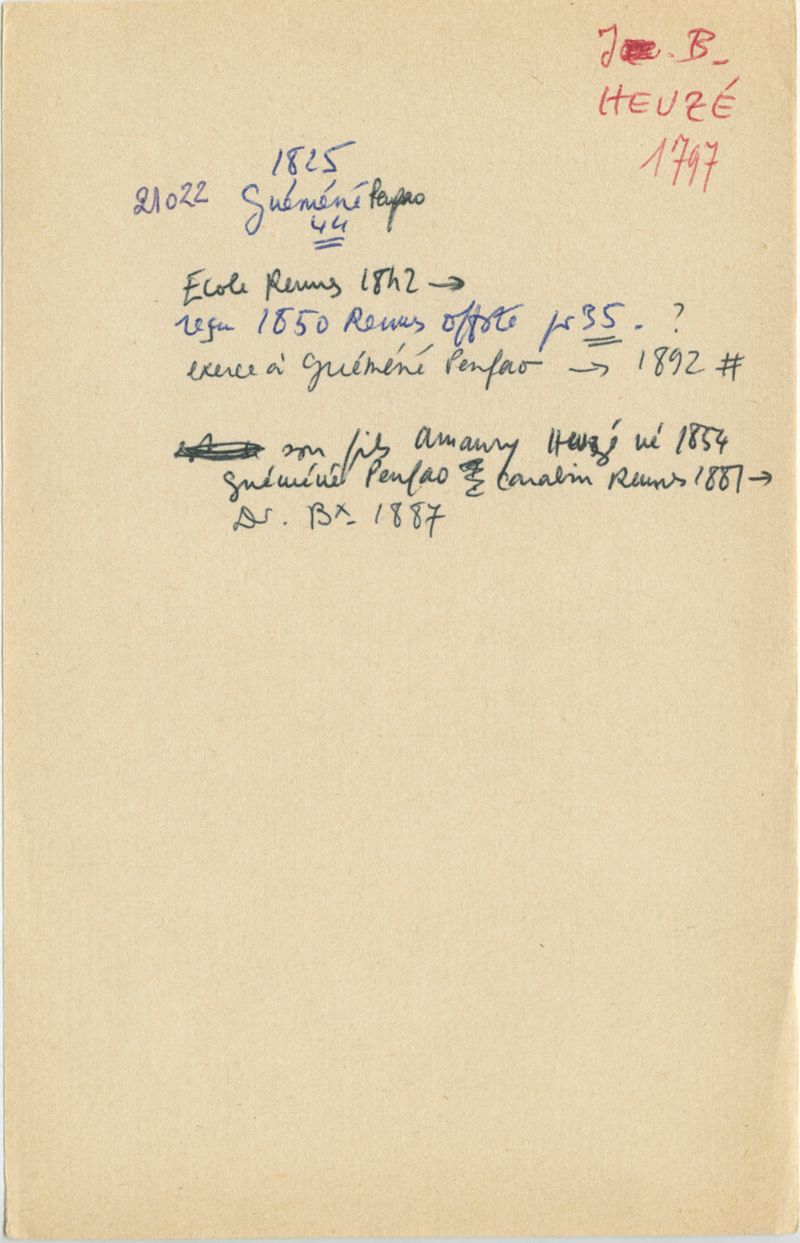 J. B_
HEUZÉ
1797
1825
21022 Guéméné Penfao
44
Ecole Rennes 1842 →
reçu 1850 Rennes offste pr 35 . ?
exerce à Guéméné Penfao → 1892 #
son fils Amaury Heuzé né 1854
Guéméné Penfao carabin Rennes 1881 →
Dr. Bx_ 1887